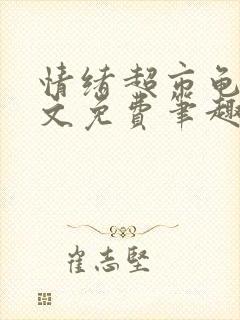 情绪超市龟
文免费笔趣
崔志坚